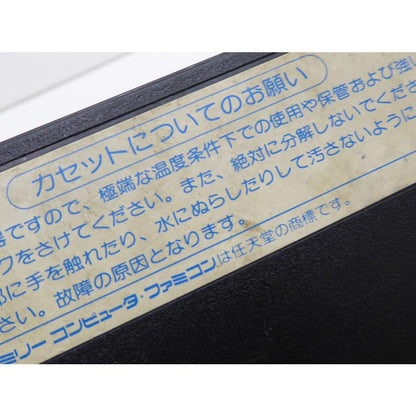 カセットについてのお願い
器ですので、極端な温度条件下での使用や保管および強い
クをさけてください。また、絶対に分解しないでくださ
部に手を触れたり、水にぬらしたりして汚さないように
さい。故障の原因となります。
ミリー コンピュータ・ファミコンは任天堂の商標です。